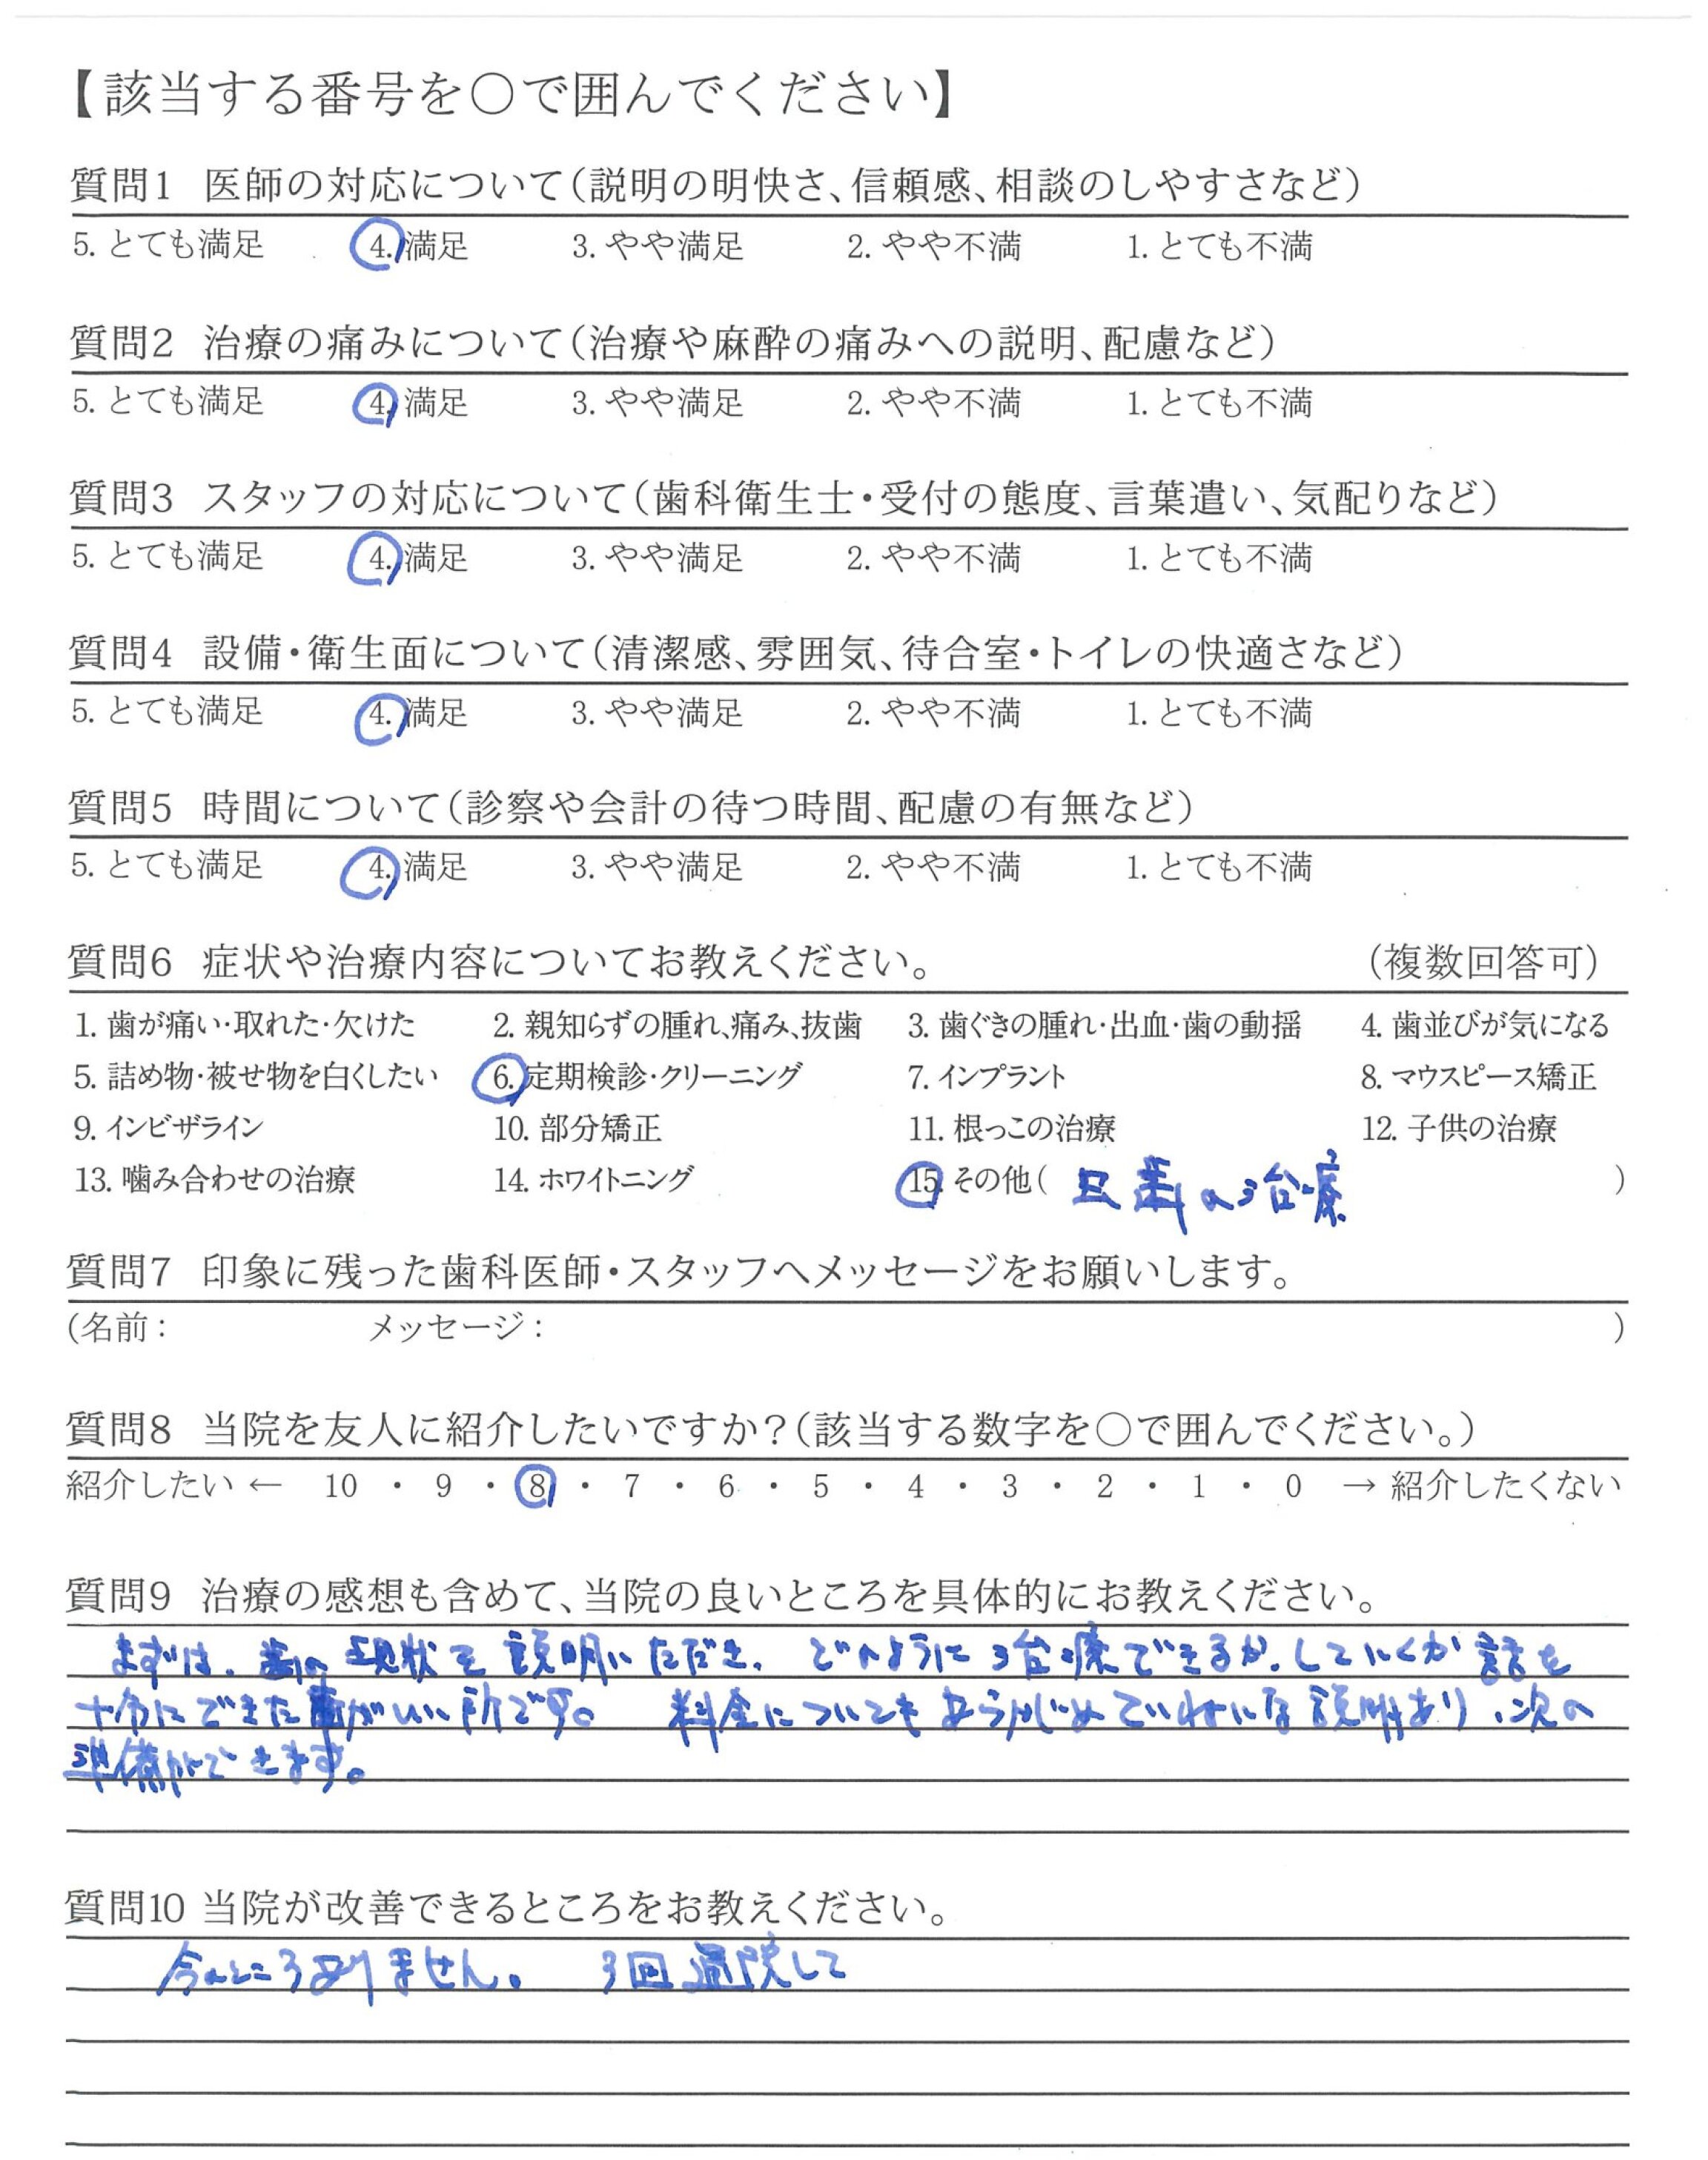 【該当する番号を○で囲んでください】
質問1 医師の対応について(説明の明快さ、信頼感、相談のしやすさなど)
5. とても満足 4. 満足 3. やや満足 2. やや不満 1. とても不満
質問2 治療の痛みについて(治療や麻酔の痛みへの説明、配慮など)
5. とても満足 4. 満足 3. やや満足 2. やや不満 1. とても不満
質問3 スタッフの対応について(歯科衛生士・受付の態度、言葉遣い、気配りなど)
5. とても満足 4. 満足 3. やや満足 2. やや不満 1. とても不満
質問4 設備・衛生面について(清潔感、雰囲気、待合室・トイレの快適さなど)
5. とても満足 4. 満足 3. やや満足 2. やや不満 1. とても不満
質問5 時間について(診察や会計の待つ時間、配慮の有無など)
5. とても満足 4. 満足 3. やや満足 2. やや不満 1. とても不満
質問6 症状や治療内容についてお教えください。 (複数回答可)
1. 歯が痛い・取れた・欠けた 2. 親知らずの腫れ、痛み、抜歯 3. 歯ぐきの腫れ・出血・歯の動揺 4. 歯並びが気になる
5. 詰め物・被せ物を白くしたい 6. 定期検診・クリーニング 7. インプラント 8. マウスピース矯正
9. インビザライン 10. 部分矯正 11. 根っこの治療 12. 子供の治療
13. 噛み合わせの治療 14. ホワイトニング 15. その他( 歯の治療 )
質問7 印象に残った歯科医師・スタッフへメッセージをお願いします。
(名前: メッセージ: )
質問8 当院を友人に紹介したいですか?(該当する数字を○で囲んでください。)
紹介したい ← 10 ・ 9 ・ 8 ・ 7 ・ 6 ・ 5 ・ 4 ・ 3 ・ 2 ・ 1 ・ 0 → 紹介したくない
質問9 治療の感想も含めて、当院の良いところを具体的にお教えください。
まずは、歯の現状を説明いただき、どのように治療できるか、していくか話を
十分にできた事がいい所です。 料金についてもあらかじめていねいな説明あり、次の
準備ができます。
質問10 当院が改善できるところをお教えください。
今のところありません。 3回通院して